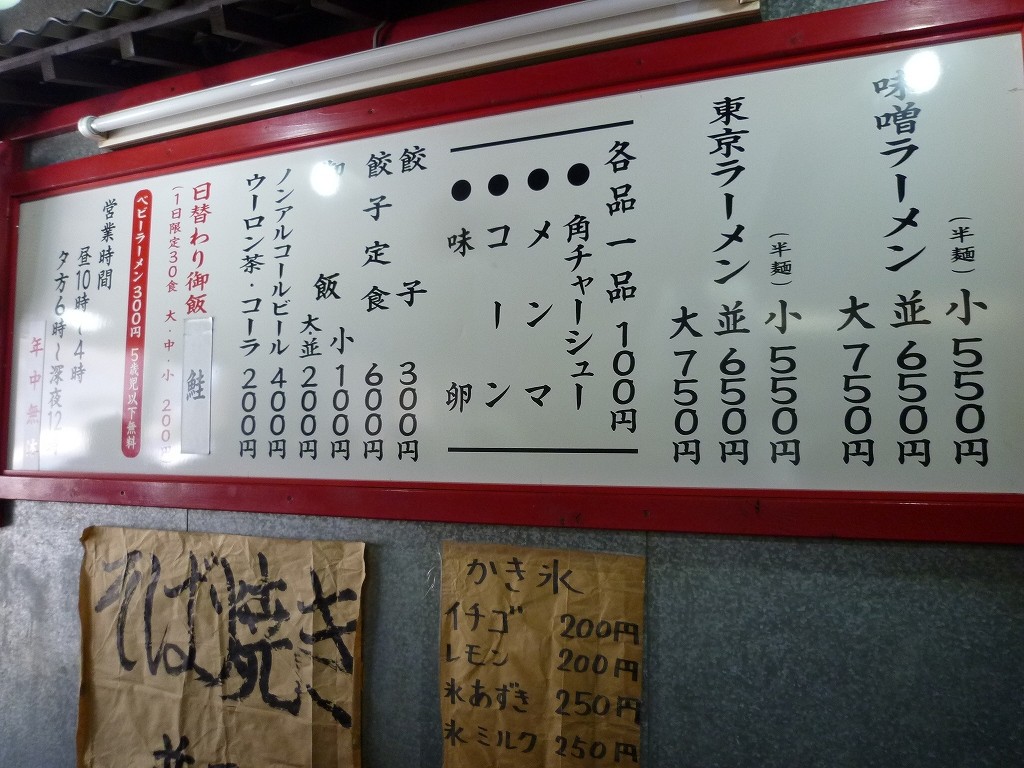 味噌ラーメン
(半麺) 小 550円
並 650円
大 750円
東京ラーメン
(半麺) 小 550円
並 650円
大 750円
各品一品 100円
● 角チャーシュー
● メンマ
● コーン
● 味卵
餃子 300円
餃子定食 600円
御飯 小 100円
大並 200円
ノンアルコールビール 400円
ウーロン茶・コーラ 200円
日替わり御飯 鮭
(1日限定30食 大・中・小 200円
ベビーラーメン300円 5歳児以下無料
営業時間
昼10時~4時
夕方6時~深夜12
年中無休
そば焼き
かき氷
イチゴ 200円
レモン 200円
氷あずき 250円
氷ミルク 250円